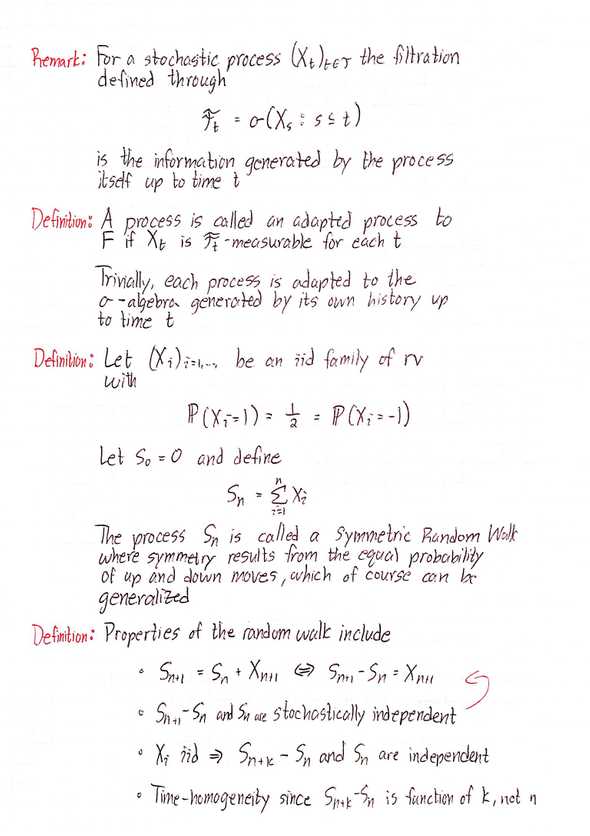 Remark: For a stochastic process (X_t)_{t∈T} the filtration
defined through
ℱ_t = σ(X_s : s ≤ t)
is the information generated by the process
itself up to time t
Definition: A process is called an adapted process to
F if X_t is ℱ_t-measurable for each t
Trivially, each process is adapted to the
σ-algebra generated by its own history up
to time t
Definition: Let (X_i)_{i=1,...} be an iid family of rv
with
ℙ(X_i=1) = 1/2 = ℙ(X_i=-1)
Let S_0 = 0 and define
S_n = ∑_{i=1}^{n} X_i
The process S_n is called a Symmetric Random Walk
where symmetry results from the equal probability
of up and down moves, which of course can be
generalized
Definition: Properties of the random walk include
• S_{n+1} = S_n + X_{n+1} ⇔ S_{n+1} - S_n = X_{n+1}
• S_{n+1} - S_n and S_n are stochastically independent
• X_i iid ⇒ S_{n+k} - S_n and S_n are independent
• Time-homogeneity since S_{n+k} - S_n is function of k, not n